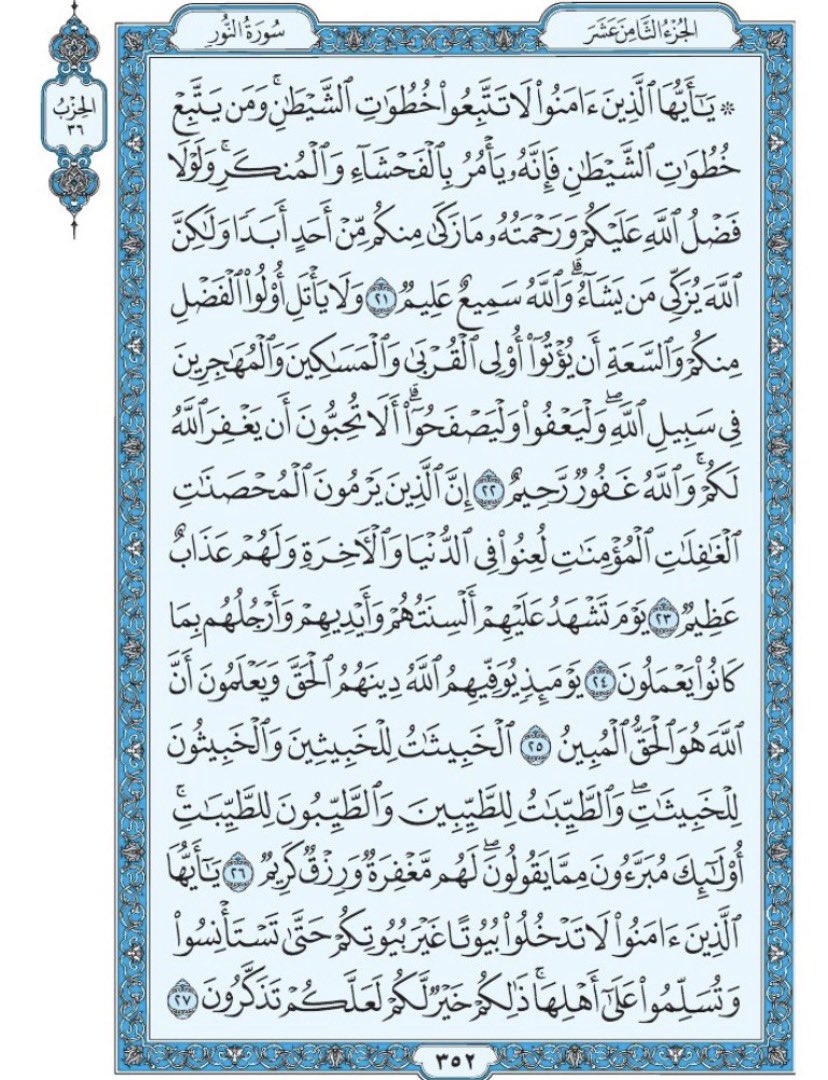 الجزء الثامن عشر
سورة النور
الحزب
٣٦
۞ يَـٰٓأَيُّهَا ٱلَّذِينَ ءَامَنُوا۟ لَا تَتَّبِعُوا۟ خُطُوَٰتِ ٱلشَّيْطَـٰنِ ۚ وَمَن يَتَّبِعْ
خُطُوَٰتِ ٱلشَّيْطَـٰنِ فَإِنَّهُۥ يَأْمُرُ بِٱلْفَحْشَآءِ وَٱلْمُنكَرِ ۚ وَلَوْلَا
فَضْلُ ٱللَّهِ عَلَيْكُمْ وَرَحْمَتُهُۥ مَا زَكَىٰ مِنكُم مِّنْ أَحَدٍ أَبَدًا وَلَـٰكِنَّ
ٱللَّهَ يُزَكِّى مَن يَشَآءُ ۗ وَٱللَّهُ سَمِيعٌ عَلِيمٌ ٢١ وَلَا يَأْتَلِ أُو۟لُوا۟ ٱلْفَضْلِ
مِنكُمْ وَٱلسَّعَةِ أَن يُؤْتُوٓا۟ أُو۟لِى ٱلْقُرْبَىٰ وَٱلْمَسَـٰكِينَ وَٱلْمُهَـٰجِرِينَ
فِى سَبِيلِ ٱللَّهِ ۖ وَلْيَعْفُوا۟ وَلْيَصْفَحُوٓا۟ ۗ أَلَا تُحِبُّونَ أَن يَغْفِرَ ٱللَّهُ
لَكُمْ ۚ وَٱللَّهُ غَفُورٌ رَّحِيمٌ ٢٢ إِنَّ ٱلَّذِينَ يَرْمُونَ ٱلْمُحْصَنَـٰتِ
ٱلْغَـٰفِلَـٰتِ ٱلْمُؤْمِنَـٰتِ لُعِنُوا۟ فِى ٱلدُّنْيَا وَٱلْـَٔاخِرَةِ وَلَهُمْ عَذَابٌ
عَظِيمٌ ٢٣ يَوْمَ تَشْهَدُ عَلَيْهِمْ أَلْسِنَتُهُمْ وَأَيْدِيهِمْ وَأَرْجُلُهُم بِمَا
كَانُوا۟ يَعْمَلُونَ ٢٤ يَوْمَئِذٍ يُوَفِّيهِمُ ٱللَّهُ دِينَهُمُ ٱلْحَقَّ وَيَعْلَمُونَ أَنَّ
ٱللَّهَ هُوَ ٱلْحَقُّ ٱلْمُبِينُ ٢٥ ٱلْخَبِيثَـٰتُ لِلْخَبِيثِينَ وَٱلْخَبِيثُونَ
لِلْخَبِيثَـٰتِ ۖ وَٱلطَّيِّبَـٰتُ لِلطَّيِّبِينَ وَٱلطَّيِّبُونَ لِلطَّيِّبَـٰتِ ۚ
أُو۟لَـٰٓئِكَ مُبَرَّءُونَ مِمَّا يَقُولُونَ ۖ لَهُم مَّغْفِرَةٌ وَرِزْقٌ كَرِيمٌ ٢٦ يَـٰٓأَيُّهَا
ٱلَّذِينَ ءَامَنُوا۟ لَا تَدْخُلُوا۟ بُيُوتًا غَيْرَ بُيُوتِكُمْ حَتَّىٰ تَسْتَأْنِسُوا۟
وَتُسَلِّمُوا۟ عَلَىٰٓ أَهْلِهَا ۚ ذَٰلِكُمْ خَيْرٌ لَّكُمْ لَعَلَّكُمْ تَذَكَّرُونَ ٢٧
٣٥٢